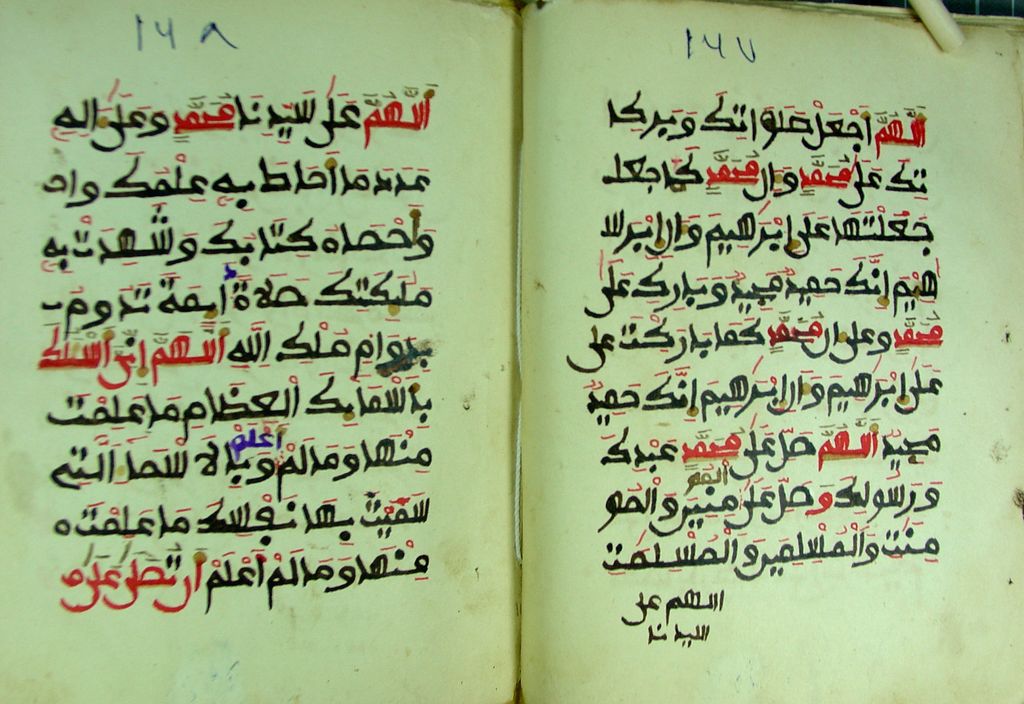 ١٦٧
اَللَّهُمَّ اَجْعَلْ صَلَوَاتِكَ وَبَركا
تِكَ عَلَى مُحَمَّدٍ وَالِ مُحَمَّدٍ كَمَا جعل
جَعَلْتَهَا عَلَى إِبْرَهِيمَ وَالِ إِبْرَ
هِيمَ إِنَّكَ حَمِيدٌ مَجِيدٌ وَبَارِكْ عَلَى
مُحَمَّدٍ وَعَلَى الِ مُحَمَّدٍ كَمَا بَارَكْتَ على
عَلَى إِبْرَهِيمَ وَالِ إِبْرَهِيمَ إِنَّكَ حَمِيدٌ
مَجِيدٌ اَللَّهُمَّ صَلِّ عَلَى مُحَمَّدٍ عَبْدِكَ
وَرَسُولِكَ وَصَلِّ عَلَى الْمُومِنِينَ وَالْمُو
مِنَتِ وَالْمُسْلِمِينَ وَالْمُسْلِمَتِ
اللهم على
سيدنا
١٦٨
اَللَّهُمَّ عَلَى سَيِّدِنَا مُحَمَّدٍ وَعَلَى الِهِ
عَدَدَ مَا أَحَاطَ بِهِ عِلْمُكَ واح
وَأَحْصَاهُ كِتَابُكَ وَشَهِدَتْ بِهِ
مَلَئِكَتُكَ صَلَاةً دَائِمَةً تَدُومُ
بِدَوَامِ مُلْكِ اللَّهِ اَللَّهُمَّ إِنِّي أَسْئَلُكَ
بِأَسْمَائِكَ الْعِظَامِ مَا عَلِمْتُ
مِنْهَا وَمَا لَمْ أَعْلَمْ وَبِالاسْمَا الَّتِي
سَمَّيْتَ بِهَا نَفْسَكَ مَا عَلِمْتُ
مِنْهَا وَمَا لَمْ أَعْلَمْ أَن تُصَلِّيَ عَلَى